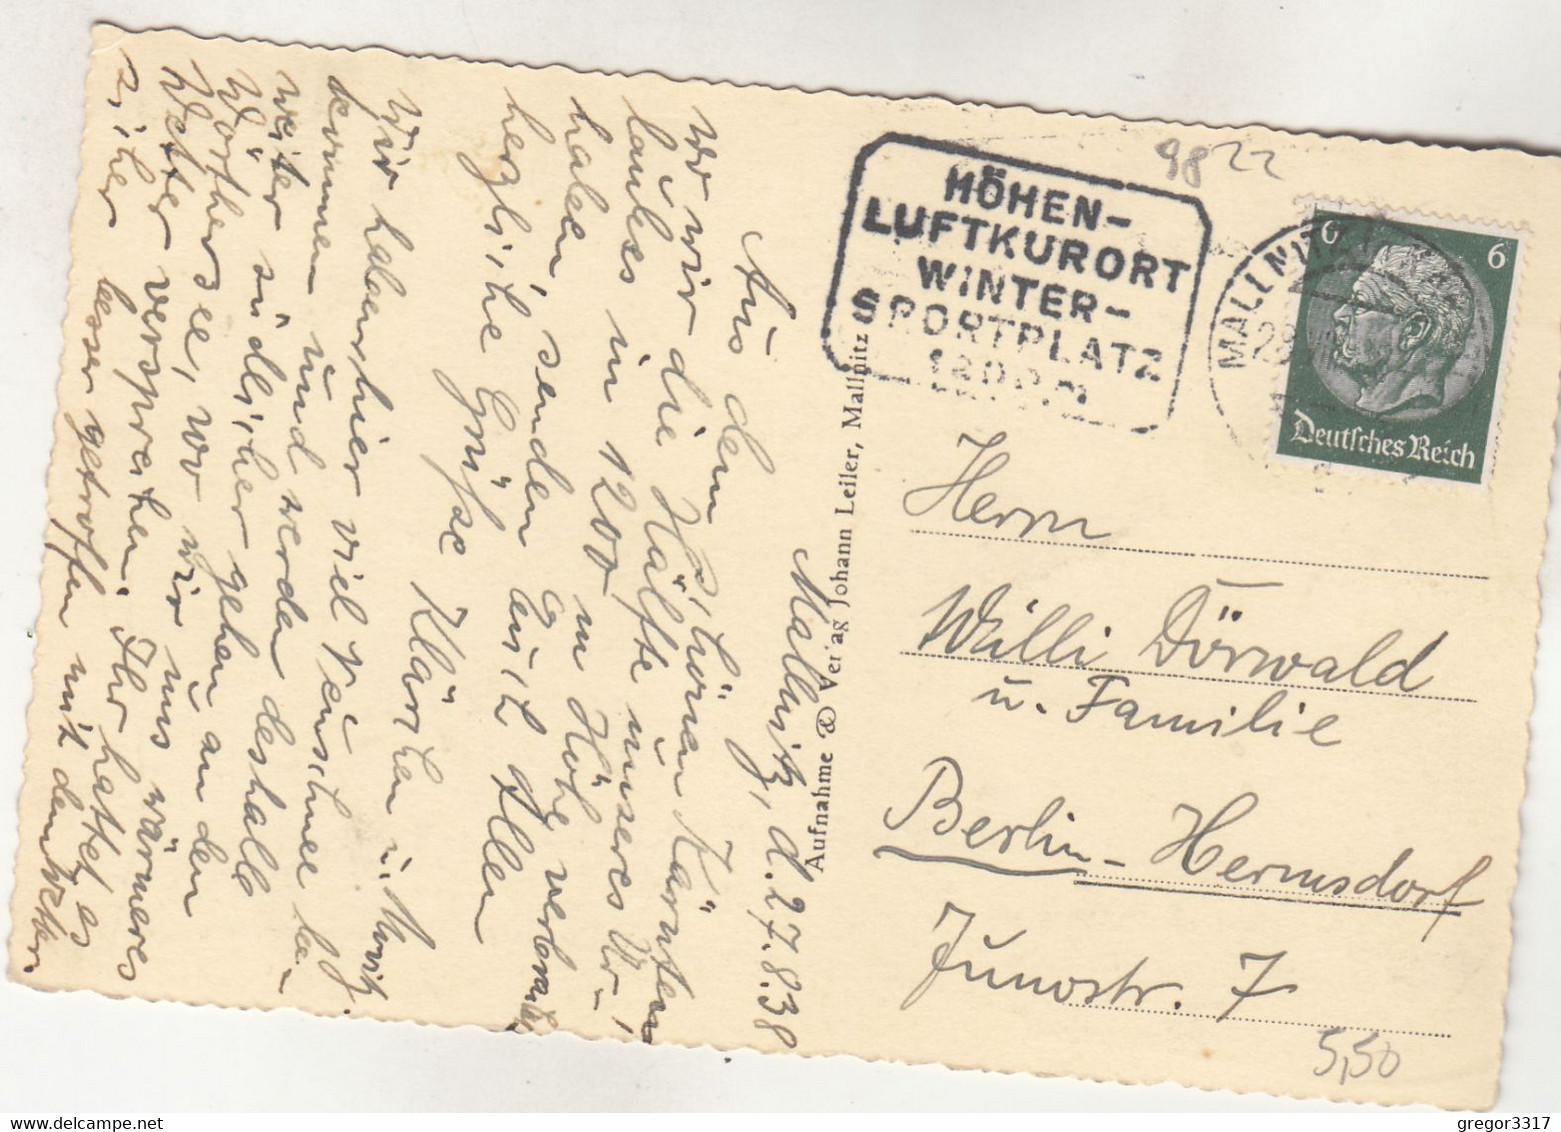 Mallnitz, d. 27.8.38
Aus dem schönen Kärnten,
wo wir die Hälfte unseres Ur-
laubes in 1200 m Höhe verbracht
haben, senden Euch Allen
herzliche Grüsse Klärchen u. Moritz
Wir haben hier viel Neuschnee be-
kommen und werden deshalb
weiter südlicher gehen an den
Wörthersee, wo wir uns wärmeres
Wetter versprechen. Ihr hattet es
sicher besser getroffen mit dem Wetter.
Aufnahme & Verlag Johann Leiler, Mallnitz
HÖHEN-
LUFTKURORT
WINTER-
SPORTPLATZ
1200 m
9822
MALLNITZ
28
6 6
Deutsches Reich
Herrn
Willi Dörwald
u. Familie
Berlin-Hermsdorf
Junostr. 7
5,50
gregor3317